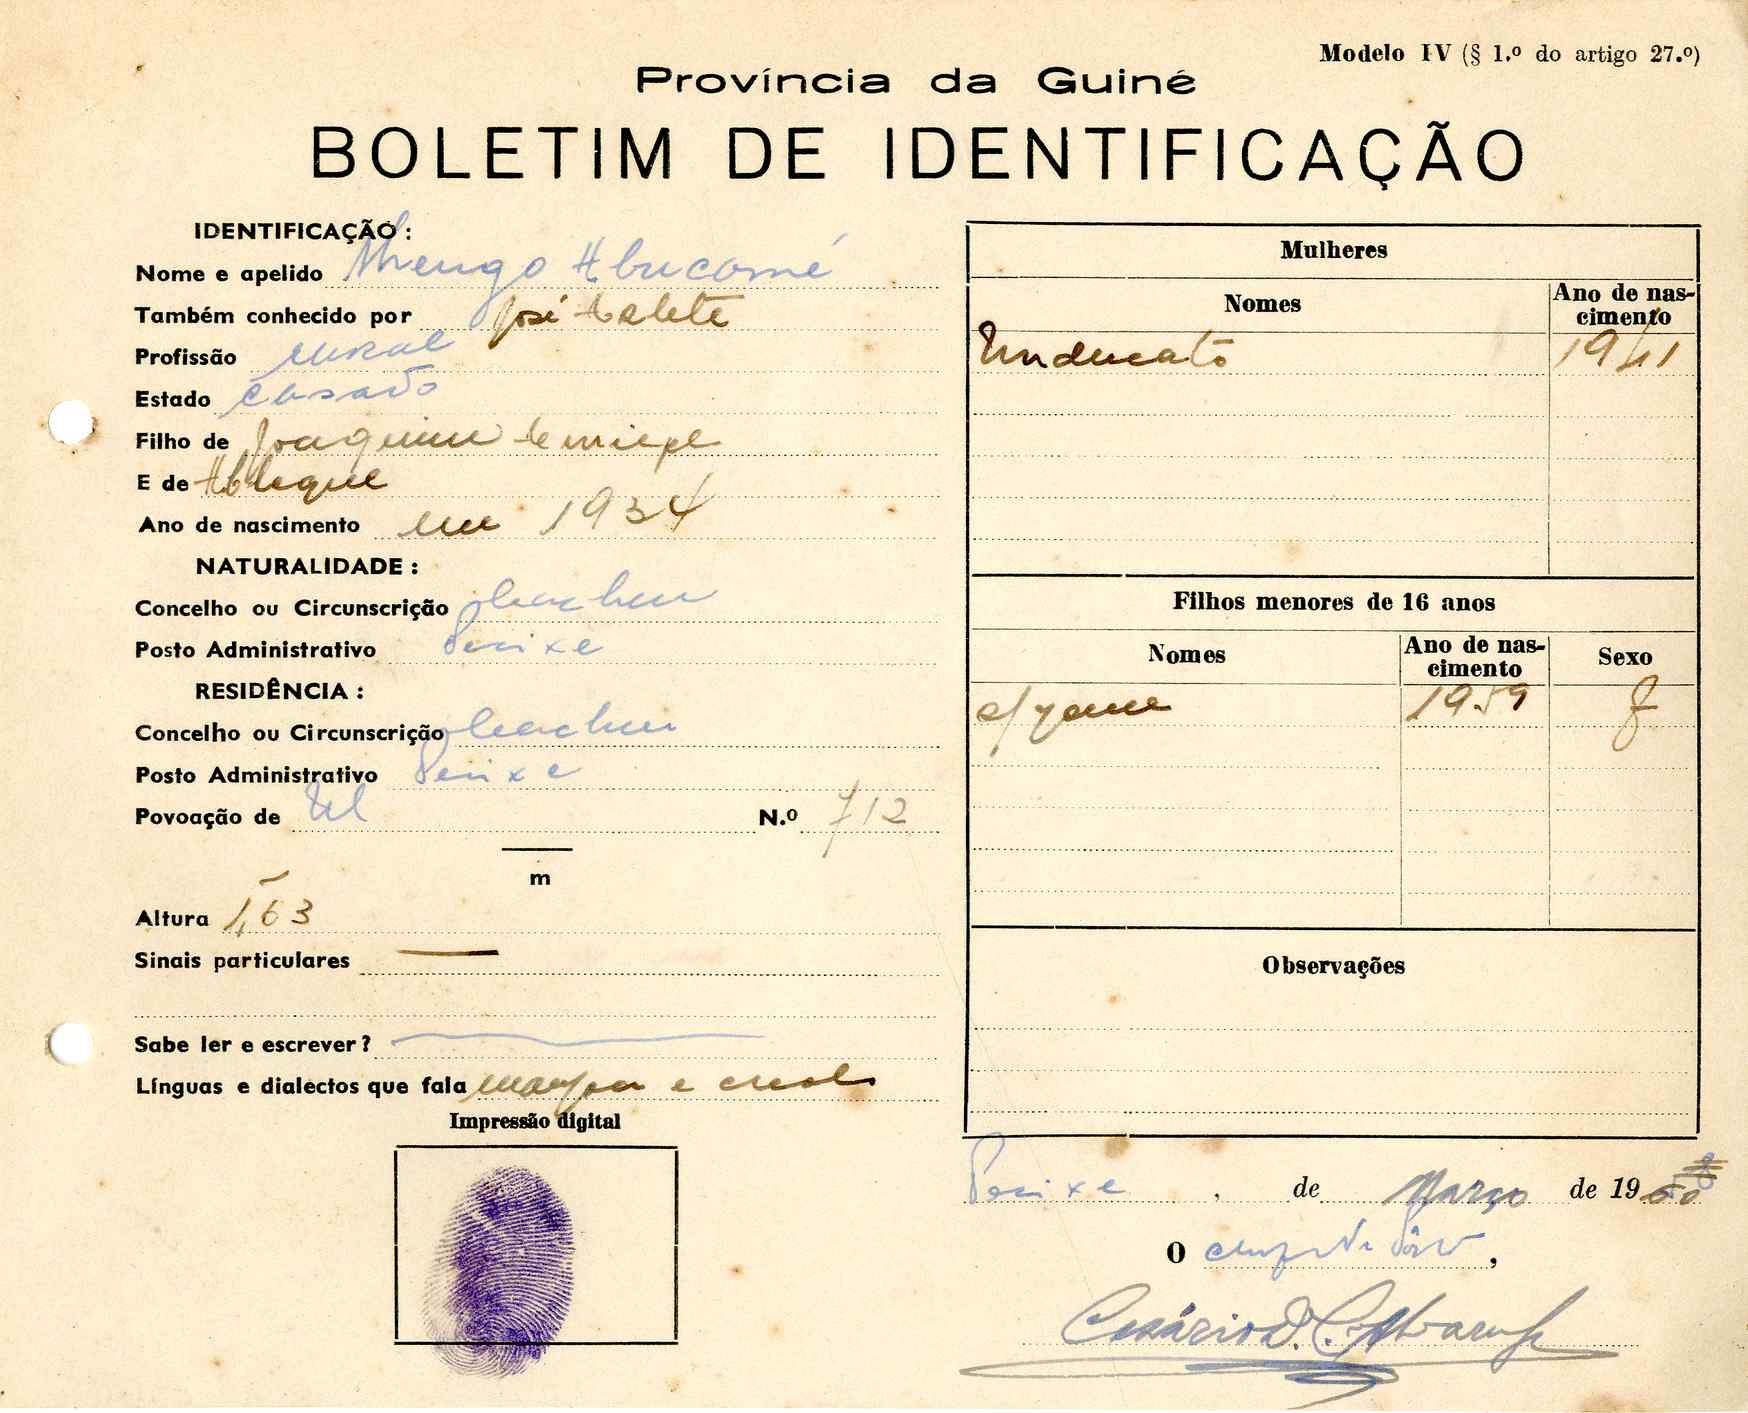 Modelo IV (§ 1.º do artigo 27.º)
Província da Guiné
BOLETIM DE IDENTIFICAÇÃO
IDENTIFICAÇÃO:
Nome e apelido
Também conhecido por José
Profissão rural
Estado casado
Filho de Joaquim
E de
Ano de nascimento em 1934
NATURALIDADE:
Concelho ou Circunscrição Cacheu
Posto Administrativo Pecixe
RESIDÊNCIA:
Concelho ou Circunscrição Cacheu
Posto Administrativo Pecixe
Povoação de N.º 712
m
Altura 1,63
Sinais particulares
Sabe ler e escrever?
Línguas e dialectos que fala e
Impressão digital
Mulheres
Nomes
Ano de nas-
cimento
1941
Filhos menores de 16 anos
Nomes
Ano de nas-
cimento
Sexo
1959 f
Observações
Pecixe, de Março de 1960
O